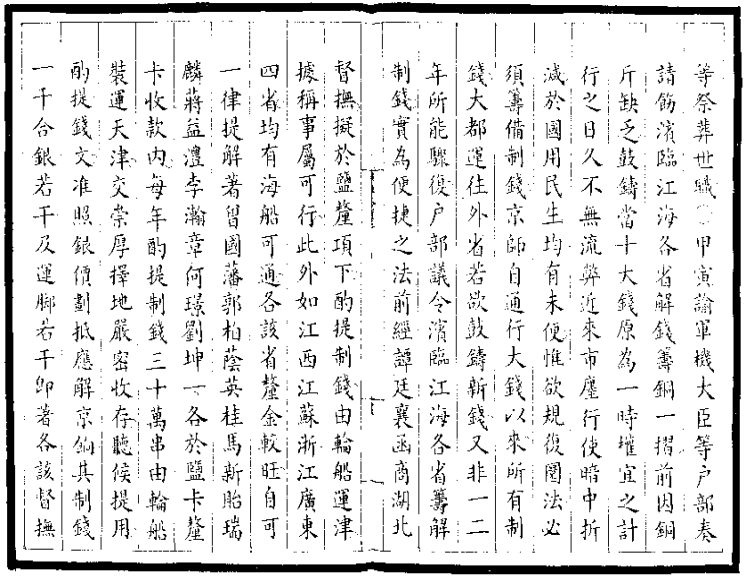 等祭葬世職○甲寅諭軍機大臣等戶部奏
請飭濱臨江海各省解錢籌銅一摺前因銅
斤缺乏鼓鑄當十大錢原為一時權宜之計
行之日久不無流弊近來市廛行使暗中折
減於國用民生均有未便惟欲規復圜法必
須籌備制錢京師自通行大錢以來所有制
錢大都運往外省若欲鼓鑄新錢又非一二
年所能驟復戶部議令濱臨江海各省籌解
制錢實為便捷之法前經譚廷襄函商湖北
督撫擬於鹽釐項下酌提制錢由輪船運津
據稱事屬可行此外如江西江蘇浙江廣東
四省均有海船可通各該省釐金較旺自可
一律提解著曾國藩郭柏蔭英桂馬新貽瑞
麟蔣益澧李瀚章何璟劉坤一各於鹽卡釐
卡收款內每年酌提制錢三十萬串由輪船
裝運天津交崇厚擇地嚴密收存聽候提用
酌提錢文准照銀價劃抵應解京餉其制錢
一千合銀若干及運腳若干卽著各該督撫